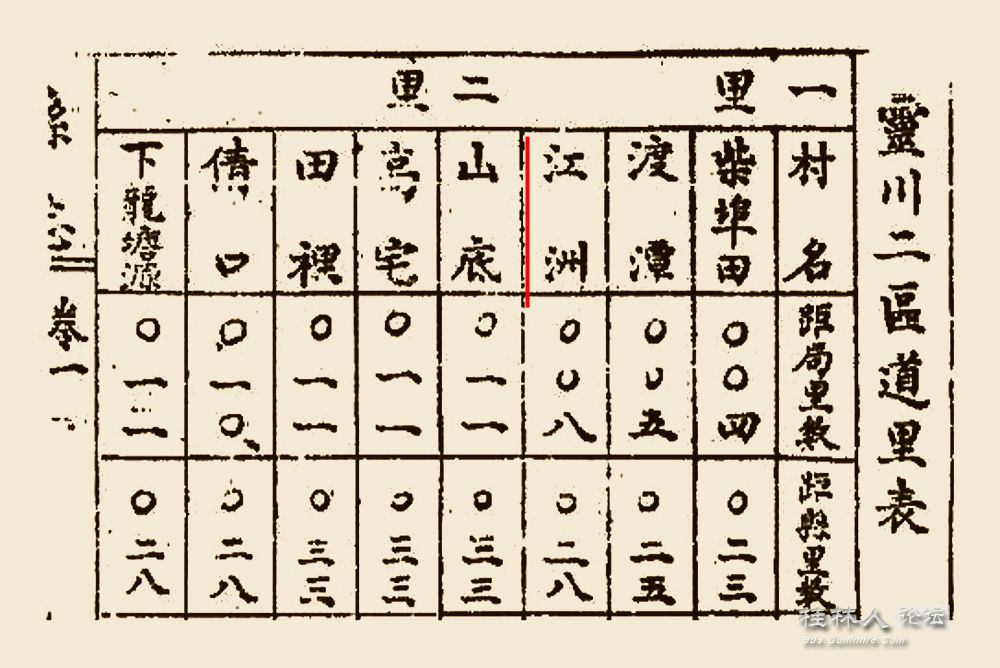 靈川二區道里表
一里
二里
村名
距局里数
距縣里数
柴埠田
〇〇四
〇二三
渡潭
〇〇五
〇二五
江洲
〇〇八
〇二八
山底
〇一一
〇三三
宅
〇一一
〇三三
田裡
〇一一
〇三三
口
〇一〇
〇二八
下龍塘源
〇一二
〇二八
卷一
桂林人论坛
bbs.guilinlife.com